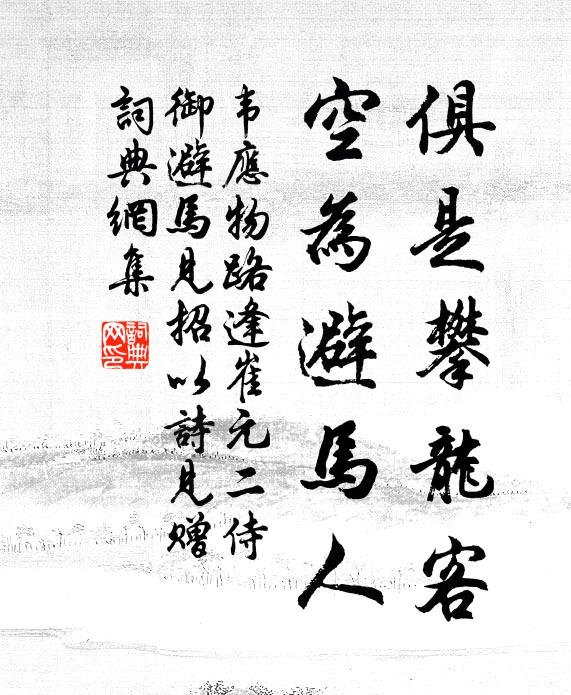 俱是攀龍客
空為避馬人
韦應物路逢崔元二侍
御避馬見招以詩見贈
詞典網集
詞典
网印